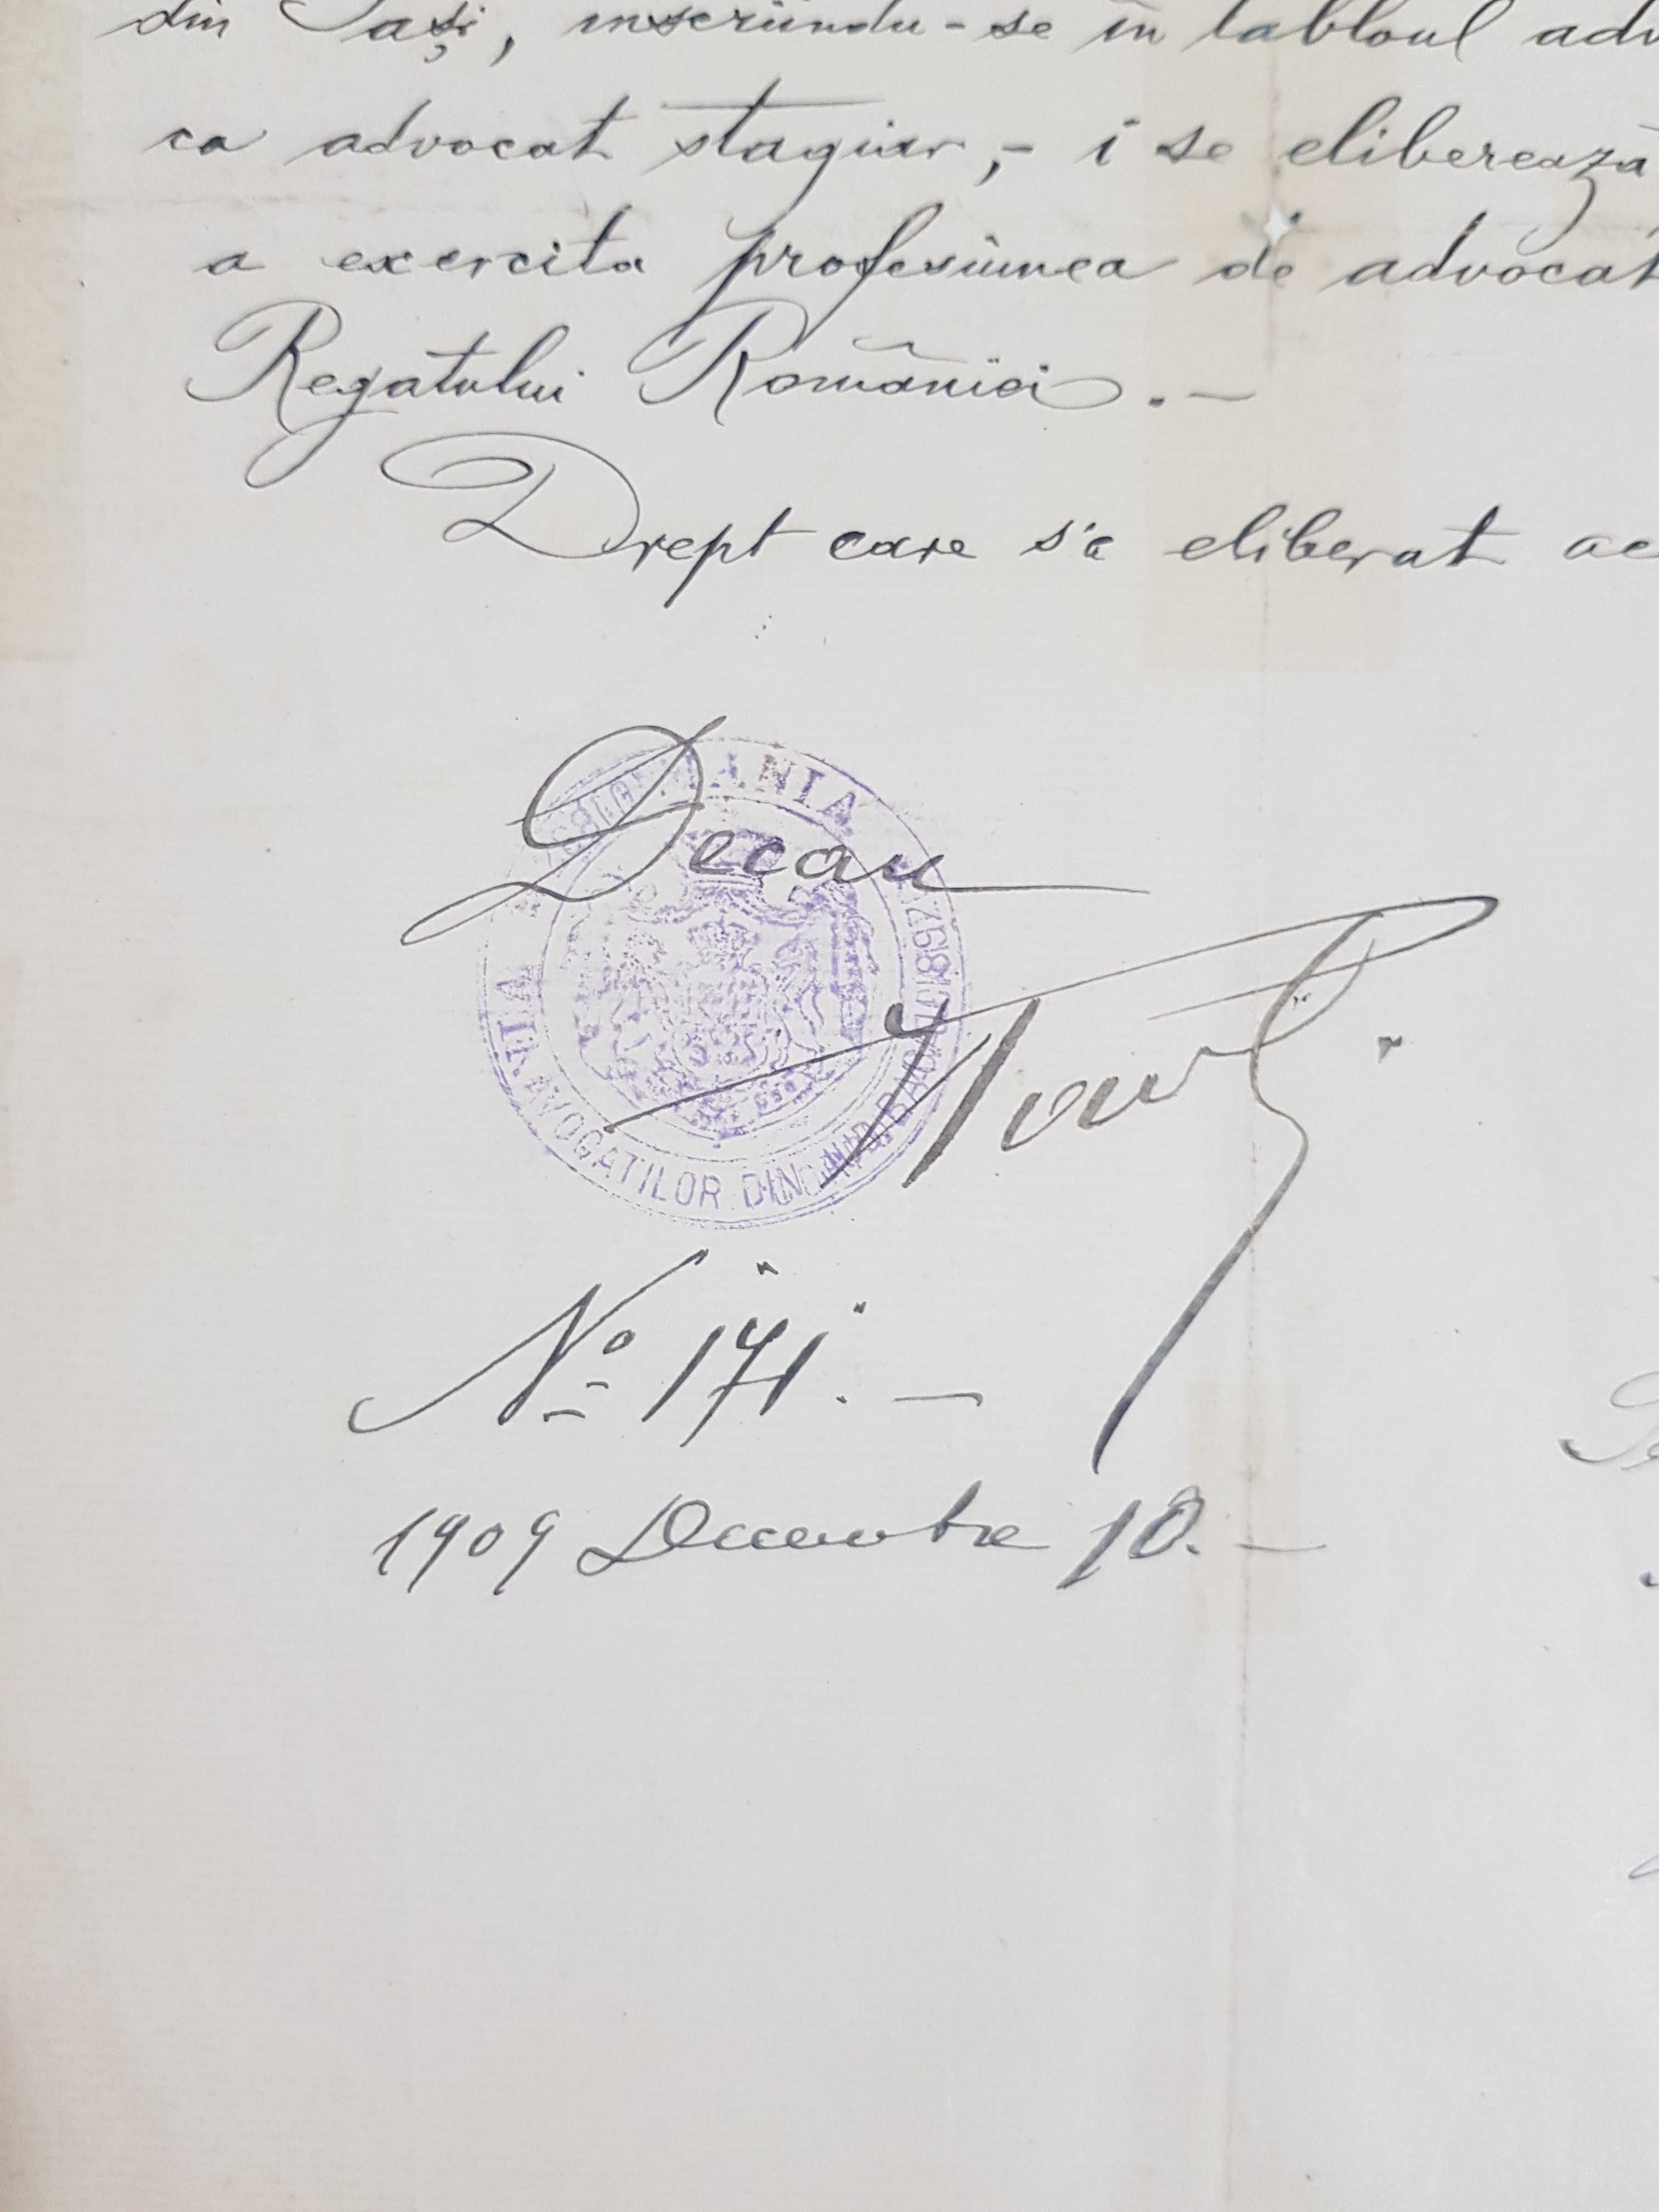 din Iași, inscriindu-se in tabloul adv
ca advocat stagiar,- i se eliberează
a exercita profesiunea de advocat
Regatului României.-
Drept care s'a eliberat ac
Decan
ANIA
1897
AVOCATILOR DIN
No 171.-
1909 Decembre 10.-